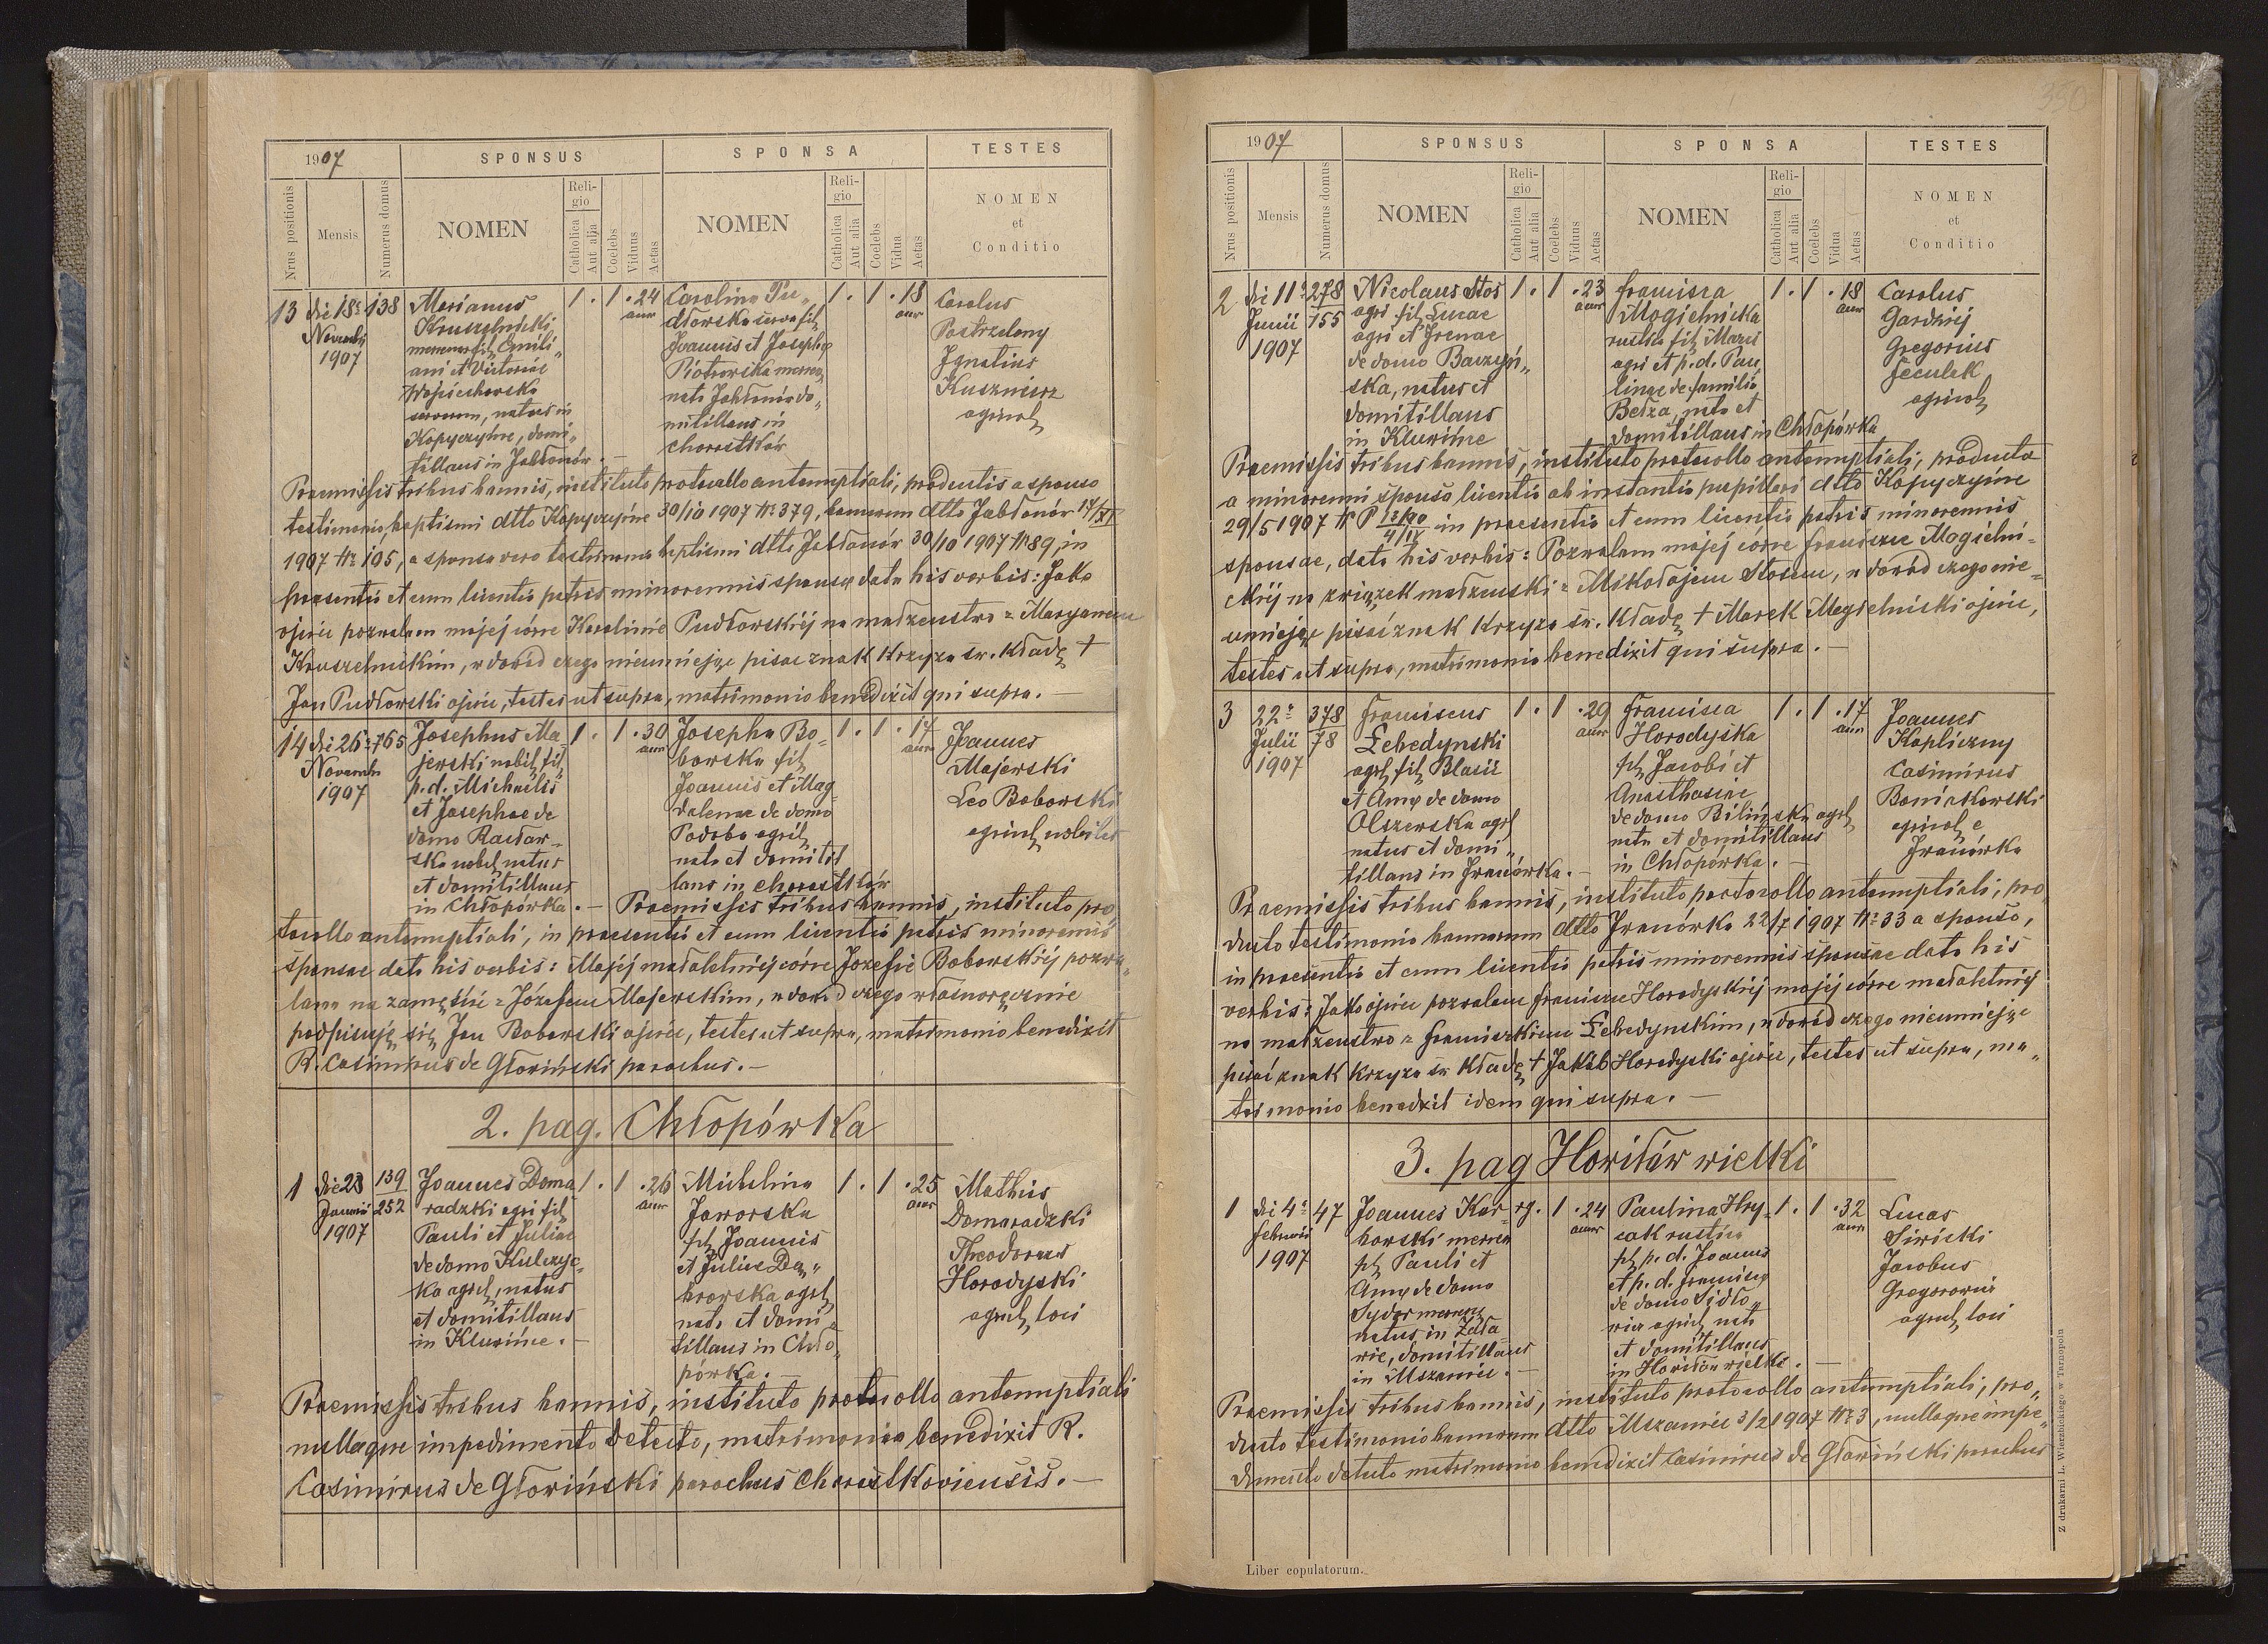 1907
SPONSUS
SPONSA
TESTES
Nrus positionis
Mensis
Numerus domus
NOMEN
Religio
Catholica
Aut alia
Coelebs
Viduus
Aetas
NOMEN
Religio
Catholica
Aut alia
Coelebs
Vidua
Aetas
NOMEN
et
Conditio
13
die 18ª
Novembr
1907
138
Marianus
Kruszelnicki
fil Emili„
ani et Victoriae
Wojciechowska
natus in
Kopyczyńce, domi„
tillans in Jabłonów.
1 . 1 . 24
ann
Carolina Pu„
dłowska serva fil
Joannis et Josepha
Piotrowska merc
nata Jabłonów do„
mitillans in
Chorostków
1 . 1 . 18
ann
Carolus
Postrzelony
Ignatius
Kusznierz
agricol
Praemissis tribus bannis, instituto protocollo antenuptiali, productis a sponso
testimonio baptismi dtto Kopyczyńce 30/10 1907 Nr 379, bannorum dtto Jabłonów 17/XI
1907 Nr 105, a sponsa vero testimonio baptismi dtto Jabłonów 30/10 1907 Nr 89, in
praesentia et cum licentia patris minorennis sponsae data his verbis: Jako
ojciec pozwalam mojej córce Karolinie Pudłowskiej na małżeństwo z Maryanem
Kruszelnickim, w dowód czego nieumiejąc pisać znak Krzyża św. Kładę †
Jan Pudłowski ojciec, testes ut supra, matrimonio benedixit qui supra. —
14
die 26ª
Novembr
1907
765
Josephus Ma
jewski nobil fil
p.d. Michaelis
et Josephae de
domo Racław„
ska nobil natus
et domitillans
in Chłopówka. —
1 . 1 . 30
ann
Josepha Bo„
bowska fil
Joannis et Mag
dalenae de domo
Podoba agril
nata et domitil
lans in Chorostków
1 . 1 . 17
ann
Joannes
Majewski
Leo Bobowski
agricol nobiles
Praemissis tribus bannis, instituto pro
tocollo antenuptiali, in praesentia et cum licentia patris minorennis
sponsae data his verbis: Mojej małoletniej córce Józefie Bobowskiej pozwa„
lam na zamęście z Józefem Majewskim, w dowód czego własnoręcznie
podpisuję się Jan Bobowski ojciec, testes ut supra, matrimonio benedixit
R. Casimirus de Głowiński parochus. —
2. pag. Chłopówka
1
die 23
Januari
1907
139
252
Joannes Doma
radzki agri fil
Pauli et Juliae
de domo Kulczyc„
ka agril, natus
et domitillans
in Kluwińce. —
1 . 1 . 26
ann
Michelina
Jaworska
fil Joannis
et Julia Dą„
browska agril
nata et domi„
tillans in Chło„
pówka. —
1 . 1 . 25
ann
Mathias
Domaradzki
Theodorus
Horodyski
agricol loci
Praemissis tribus bannis, instituto protocollo antenuptiali
nulloque impedimento detecto, matrimonio benedixit R.
Casimirus de Głowiński parochus Chorostkoviensis. —
350
1907
SPONSUS
SPONSA
TESTES
Nrus positionis
Mensis
Numerus domus
NOMEN
Religio
Catholica
Aut alia
Coelebs
Viduus
Aetas
NOMEN
Religio
Catholica
Aut alia
Coelebs
Vidua
Aetas
NOMEN
et
Conditio
2
die 11ª
Junii
1907
278
155
Nicolaus Stos
agri fil Lucae
agri et Irenae
de domo Baczyń„
ska, natus et
domitillans
in Kluwińce
1 . 1 . 23
ann
Francisca
Mogielnicka
rustica fil Marci
agri et p.d. Pau
linae de familia
Bełza, nata et
domitillans in Chłopówka
1 . 1 . 18
ann
Carolus
Gardziej
Gregorius
Feculak
agricol
Praemissis tribus bannis, instituto protocollo antenuptiali, producta
a minorenni sponso licentia ab instantia pupillari dtto Kopyczyńce
29/5 1907 in praesentia et cum licentia patris minorennis
sponsae, data his verbis: Pozwalam mojej córce Franciszce Mogielni„
ckiej na związek małżeński z Mikołajem Stosem, w dowód czego nie„
umiejąc pisać znak Krzyża św. Kładę † Marek Mogielnicki ojciec,
testes ut supra, matrimonio benedixit qui supra. —
3
22ª
Julii
1907
378
78
Franciscus
Łebedynski
agril fil Blasii
et Anna de domo
Olszewska agril
natus et domi„
tillans in Iwanówka. —
1 . 1 . 29
ann
Francisca
Horodyska
fil Jacobi et
Anasthasiae
de domo Bilińska agril
nata et domitillans
in Chłopówka. —
1 . 1 . 17
ann
Joannes
Kapliczny
Casimirus
Bończkowski
agricol e
Iwanówka
Praemissis tribus bannis, instituto protocollo antenuptiali, pro„
ducto testimonio bannorum dtto Iwanówka 22/7 1907 Nr 33 a sponso,
in praesentia et cum licentia patris minorennis sponsae data his
verbis: Jako ojciec pozwalam Franciszce Horodyskiej mojej córce małoletniej
na małżeństwo z Franciszkiem Łebedynskim, w dowód czego nieumiejąc
pisać znak krzyża św Kładę † Jakób Horodyski ojciec, testes ut supra, ma„
trimonio benedixit idem qui supra. —
3. pag Howiłów wielki
1
die 4ª
Februari
1907
47
Joannes Kar„
bowski mercen
fil Pauli et
Anna de domo
Sydor mercen
natus in Żeła„
wie, domitillans
in Mszaniec. —
rg. 1 . 24
ann
Paulina Hry„
cak rustica
fil p.d. Joannis
et p.d. Francisca
de domo Sidło„
wicz agricol nata
et domitillans
in Howiłów wielki. —
1 . 1 . 32
ann
Lucas
Siwicki
Jacobus
Gregorowicz
agricol loci
Praemissis tribus bannis, instituto protocollo antenuptiali, pro„
ducto testimonio bannorum dtto Mszaniec 3/2 1907 Nr 3, nulloque impe„
dimento detecto matrimonio benedixit Casimirus de Głowiński parochus
Liber copulatorum.
Z drukarni L. Wierzbickiego w Tarnopolu